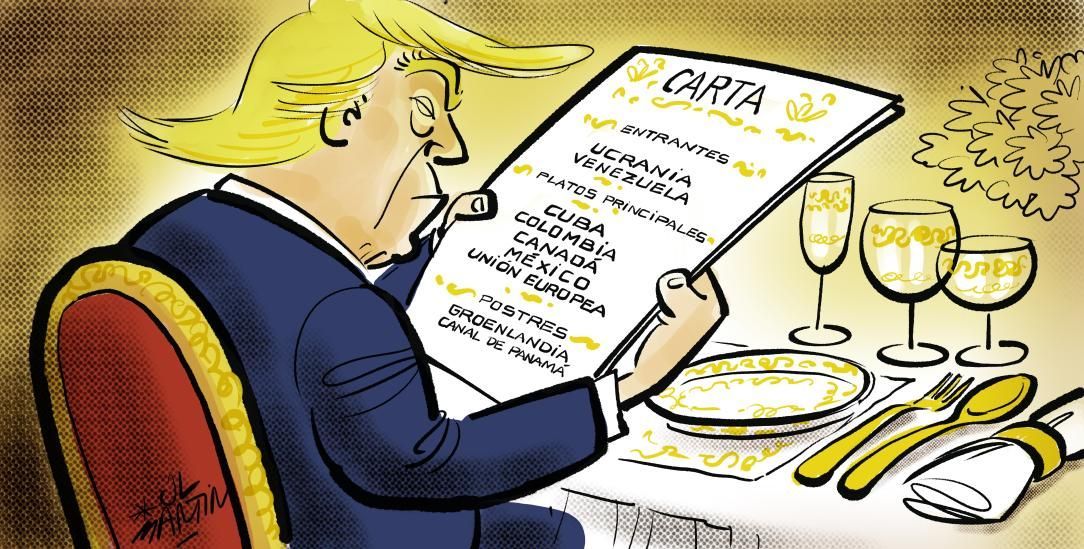 CARTA
ENTRANTES
UCRANIA
VENEZUELA
PLATOS PRINCIPALES
CUBA
COLOMBIA
CANADÁ
MÉXICO
UNIÓN EUROPEA
POSTRES
GROENLANDIA
CANAL DE PANAMÁ